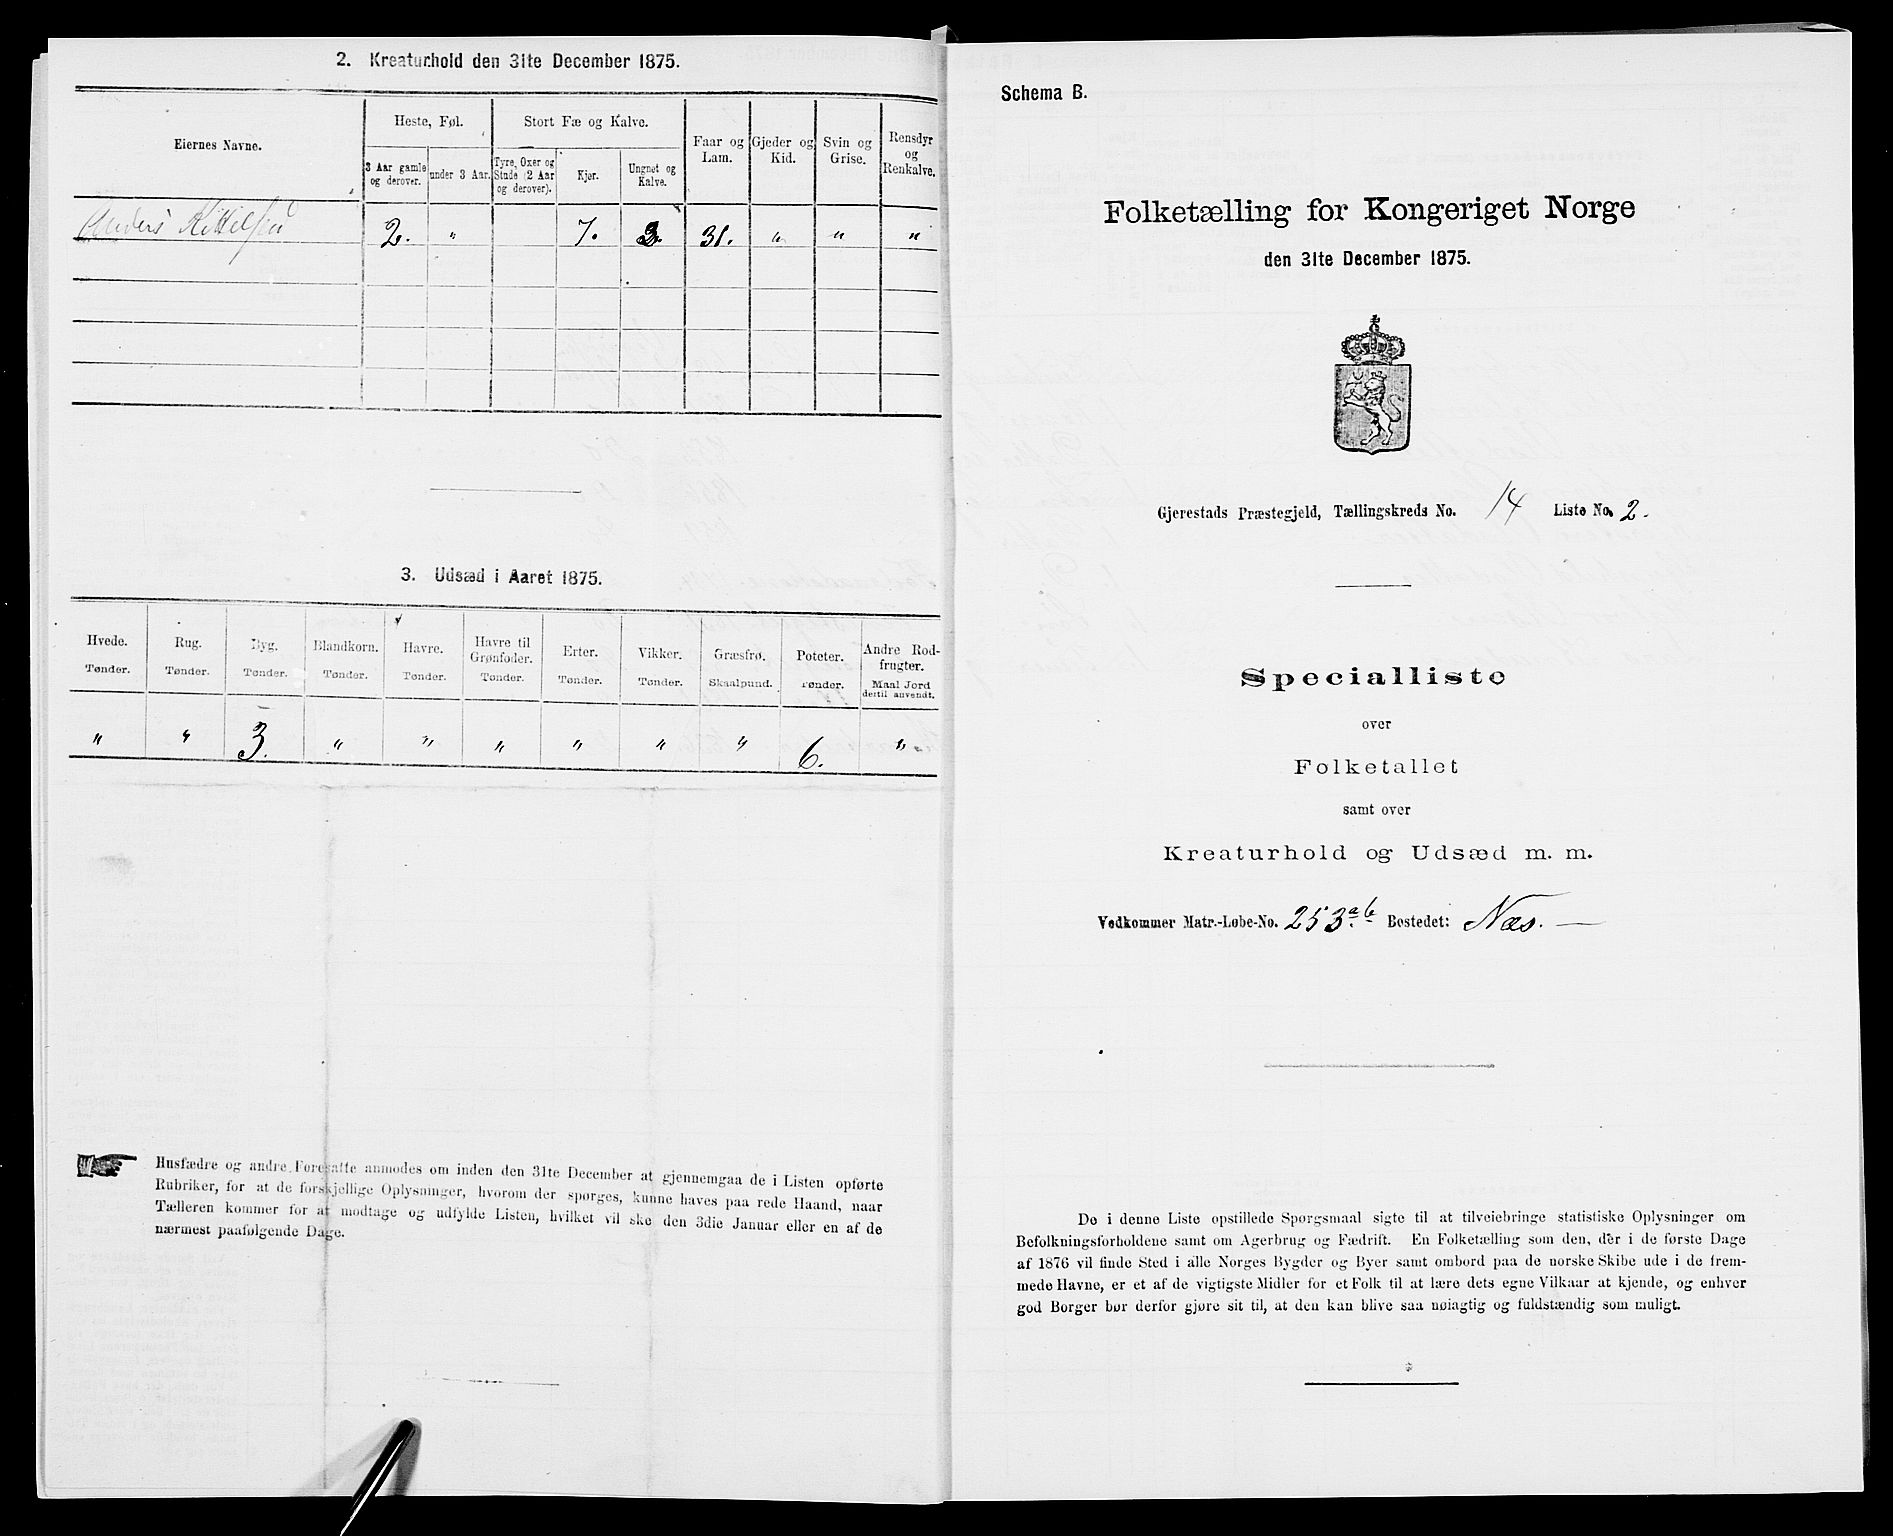 2. Kreaturhold den 31te December 1875.
Eiernes Navne.
Heste, Føl.
3 Aar gamle og derover.
under 3 Aar.
Stort Fæ og Kalve.
Tyre, Oxer og Stude (2 Aar og derover).
Kjør.
Ungnøt og Kalve.
Faar og Lam.
Gjeder og Kid.
Svin og Grise.
Rensdyr og Renkalve.
Anders Kittilsen 2. " 7. 3. 31. " " "
3. Udsæd i Aaret 1875.
Hvede. Tønder.
Rug. Tønder.
Byg. Tønder.
Blandkorn. Tønder.
Havre. Tønder.
Havre til Grønfoder. Tønder.
Erter. Tønder.
Vikker. Tønder.
Græsfrø. Skaalpund.
Poteter. Tønder.
Andre Rodfrugter. Maal Jord dertil anvendt.
" " 3. " " " " " " 6. "
Husfædre og andre Foresatte anmodes om inden den 31te December at gjennemgaa de i Listen opførte
Rubriker, for at de forskjellige Oplysninger, hvorom der spørges, kunne haves paa rede Haand, naar
Tælleren kommer for at modtage og udfylde Listen, hvilket vil ske den 3die Januar eller en af de
nærmest paafølgende Dage.
Schema B.
Folketælling for Kongeriget Norge
den 31te December 1875.
Gjerestads Præstegjeld, Tællingskreds No. 14 Liste No. 2.
Specialliste
over
Folketallet
samt over
Kreaturhold og Udsæd m. m.
Vedkommer Matr.-Løbe-No. 253 a. b Bostedet: Næs.
De i denne Liste opstillede Spørgsmaal sigte til at tilveiebringe statistiske Oplysninger om
Befolkningsforholdene samt om Agerbrug og Fædrift. En Folketælling som den, der i de første Dage
af 1876 vil finde Sted i alle Norges Bygder og Byer samt ombord paa de norske Skibe ude i de frem-
mede Havne, er et af de vigtigste Midler for et Folk til at lære dets egne Vilkaar at kjende, og enhver
god Borger bør derfor gjøre sit til, at den kan blive saa nøiagtig og fuldstændig som muligt.